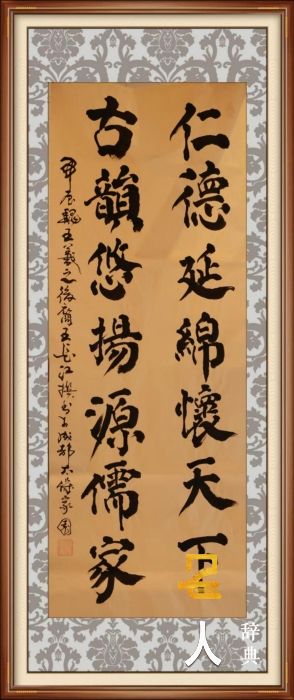 仁德延綿懷天下
古韻悠揚源儒家
甲辰王羲之後裔王長江撰书于成都家園
名人辞典